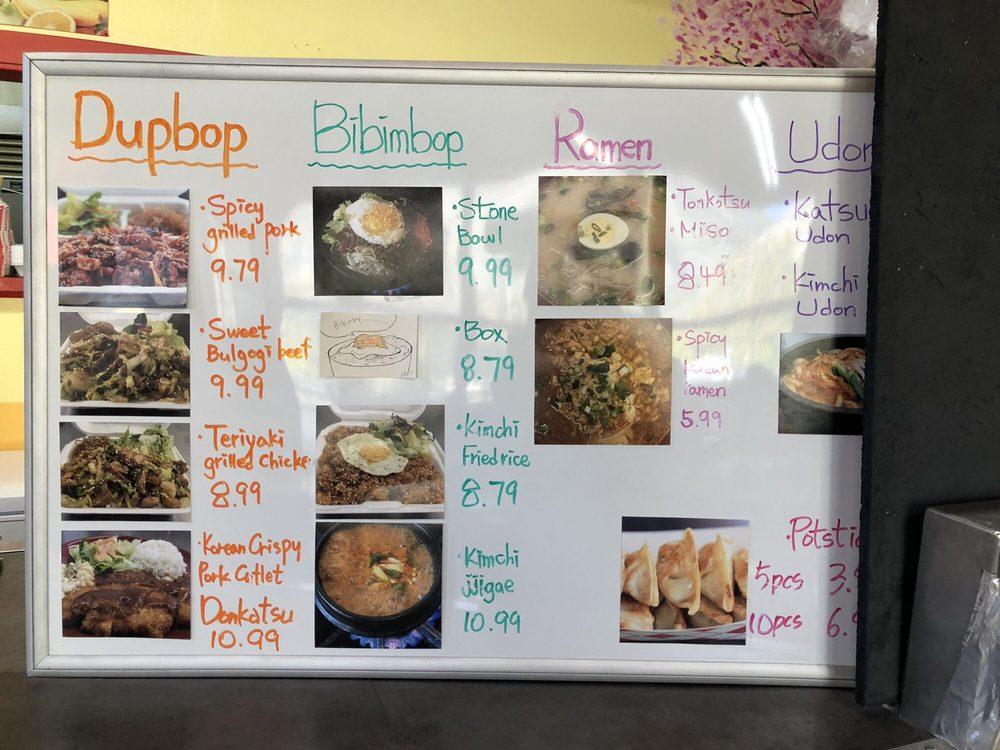 Dupbop
· Spicy
grilled pork
9.79
· Sweet
Bulgogi beef
9.99
· Teriyaki
grilled Chicke
8.99
· Korean Crispy
Pork Cutlet
Donkatsu
10.99
Bibimbop
· Stone
Bowl
9.99
· Box
8.79
· Kimchi
Fried rice
8.79
· Kimchi
jjigae
10.99
Ramen
· Tonkatsu
· Miso
8.49
· Spicy
Korean
ramen
5.99
Udon
· Katsu
Udon
· Kimchi
Udon
· Potsti
5pcs 3.9
10pcs 6.9